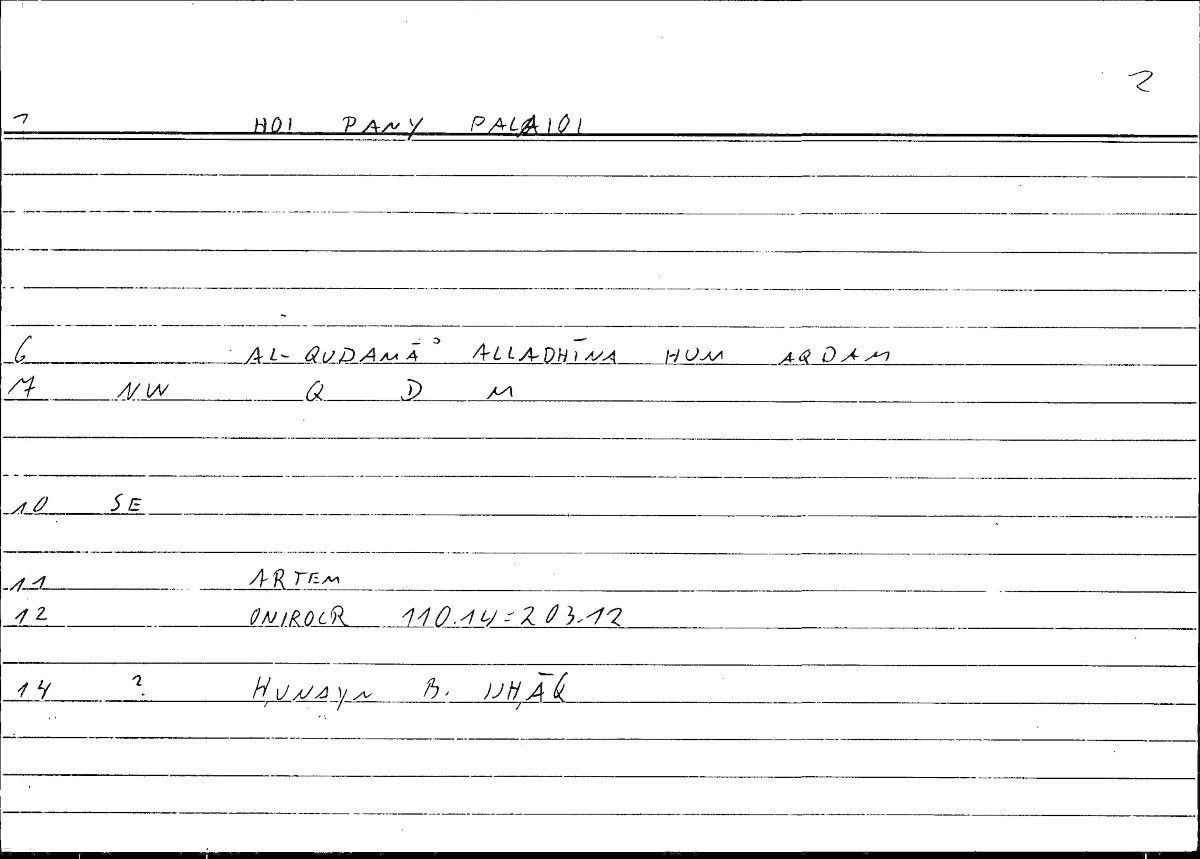 2
1 HOI PANY PALAIOI
6 AL-QUDAMĀʾ ALLADHĪNA HUM AQDAM
7 NW Q D M
10 SE
11 ARTEM
12 ONIROCR 110.14=203.12
14 ? ḤUNAYN B. ISḤĀQ